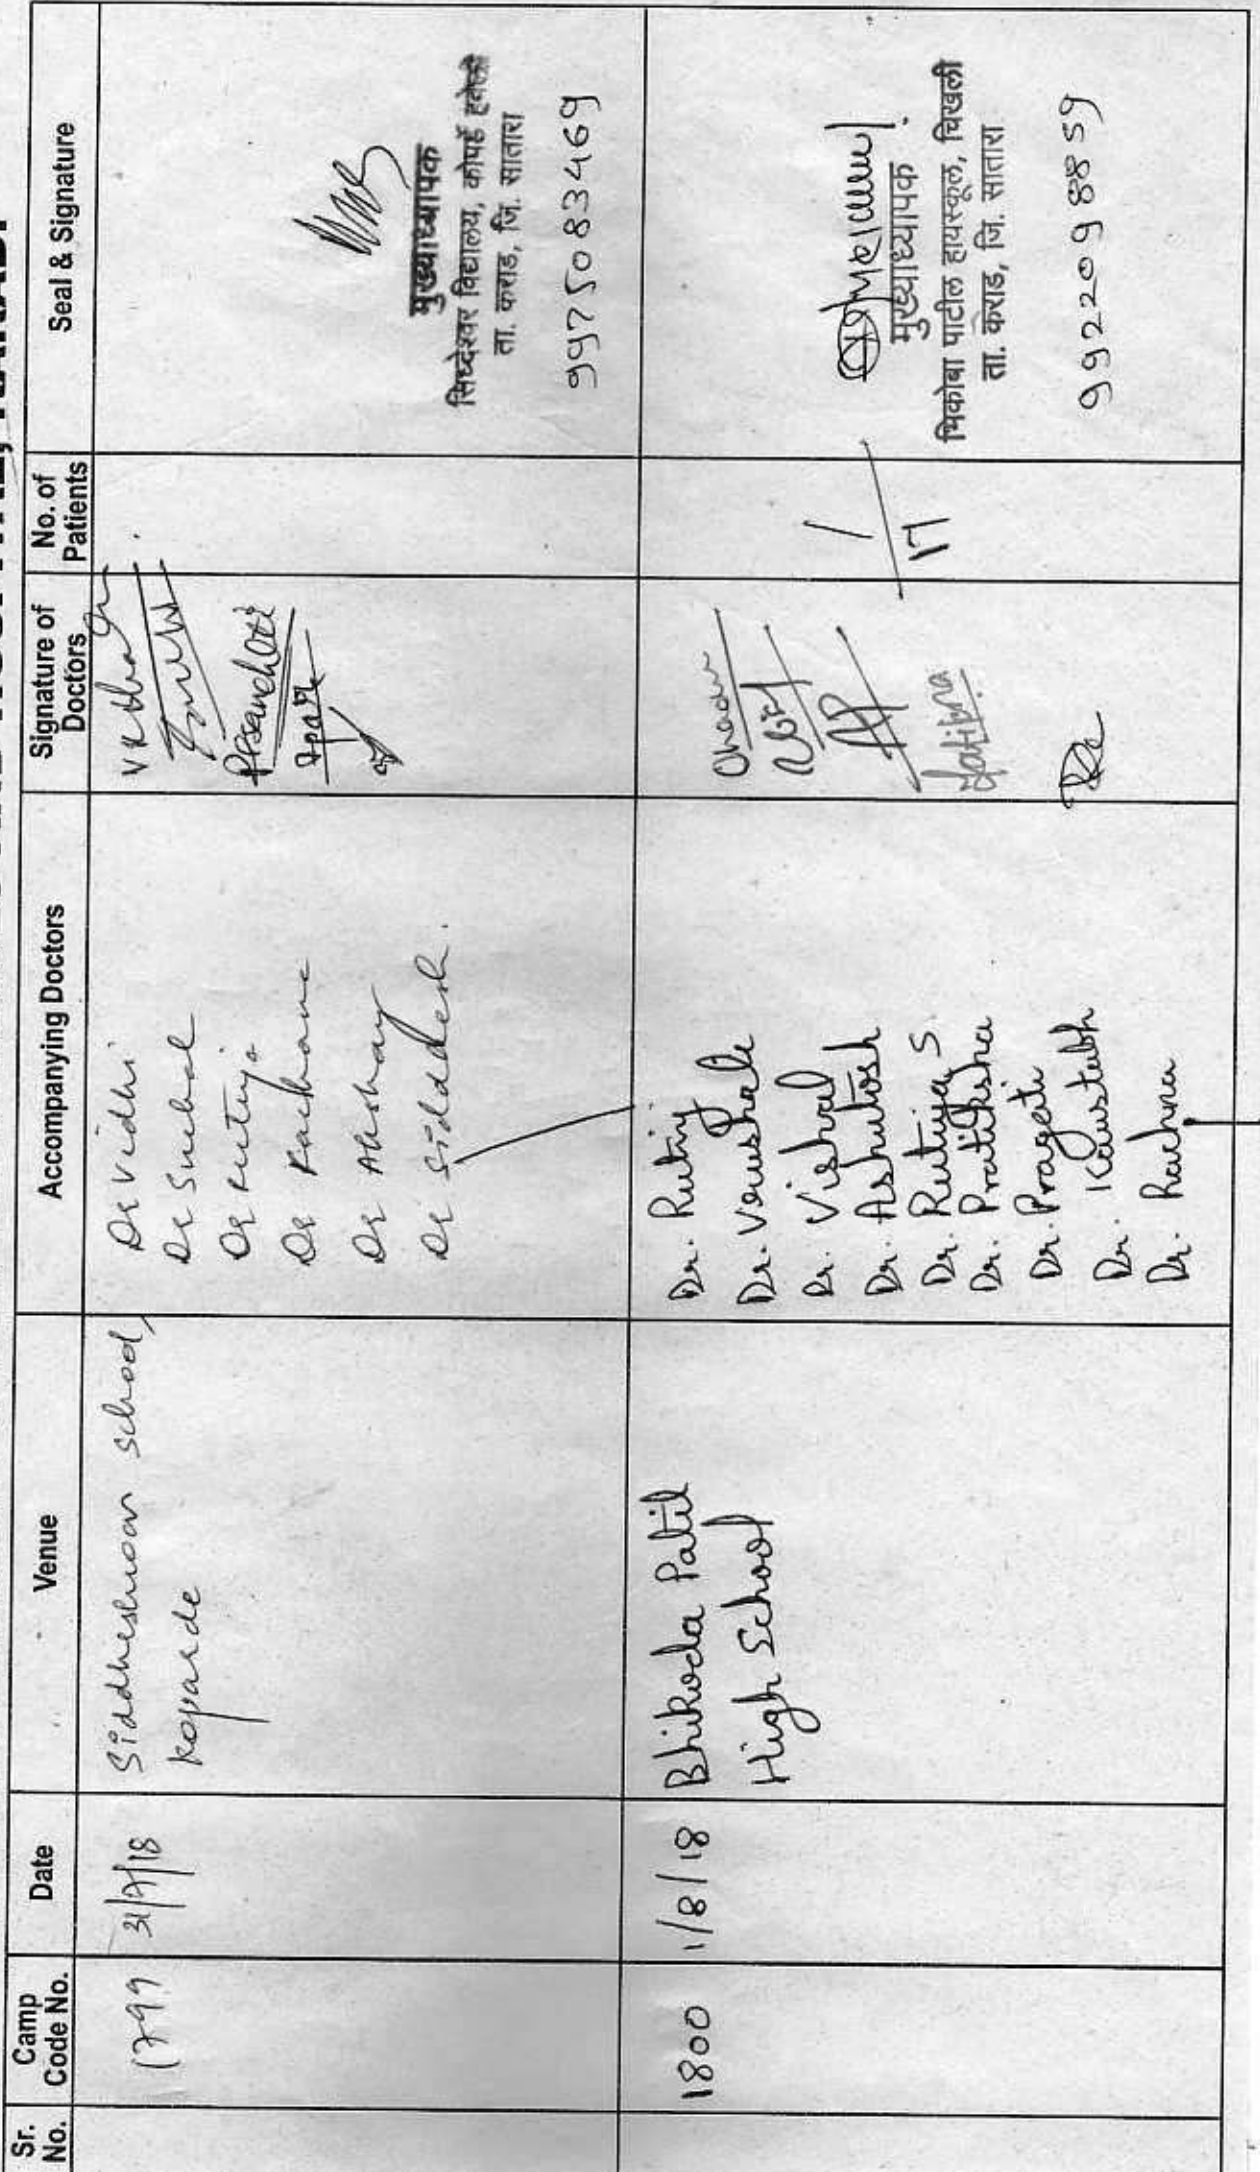 Sr. No.
Camp Code No.
Date
Venue
Accompanying Doctors
Signature of Doctors
No. of Patients
Seal & Signature
1799
31/7/18
Siddheshwar school,
Koparde
Dr Vidhi
Dr Snehal
Dr Rutuja
Dr Rachana
Dr Akshay
Dr Siddhesh.
मुख्याध्यापक
सिध्देश्वर विद्यालय, कोपर्डे हवेली
ता. कराड, जि. सातारा
9975083469
1800
1/8/18
Bhikoba Patil
High School
Dr. Rutuj
Dr. Vrushali
Dr. Vishal
Dr. Ashutosh
Dr. Rutuja S.
Dr. Pratiksha
Dr. Pragati
Dr. Kaustubh
Dr. Rachna
17
मुख्याध्यापक
भिकोबा पाटील हायस्कूल, चिखली
ता. कराड, जि. सातारा
9922098859